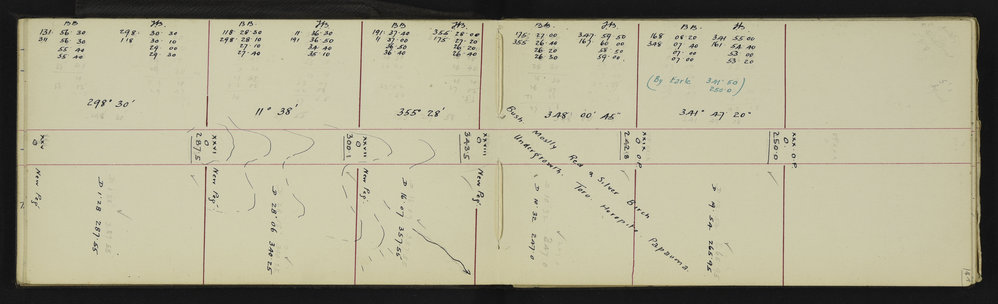 BB. JB.
131 56 30 298 30 30
311 56 30 118 30 10
55 40 29 00
55 40 29 30
298° 30'
BB. JB.
118 28 30 11 36 30
298 28 10 191 36 50
27 10 34 40
27 40 35 10
11° 38'
BB JB.
191 37 40 355 28 00
11 37 00 175 27 20
36 50 26 20
36 40 26 40
355° 28'
BB. JB.
175 27 00 347 59 50
355 26 40 167 60 00
26 20 58 50
26 30 59 00
348 00' 45"
BB. JB.
168 08 20 341 55 00
348 07 40 161 54 40
07 00 53 00
07 00 53 20
(By Earle 341.50
250.0)
341° 47 20"
XXV
0
XXVI
0
287.5
XXVII
0
300.1
XXVIII
0
343.5
XXIX O.P.
0
242.8
XXX. O.P.
0
250.0
New Peg
D 1.28 287.55
New Peg
D 28.06 340.25
New Peg
D 16.07 357.55
New Peg
Bush Mostly Red & Silver Birch
Undergrowth. Toro. Horopito. Papauma.
D 10.32 247.0
D 19.54 265.95